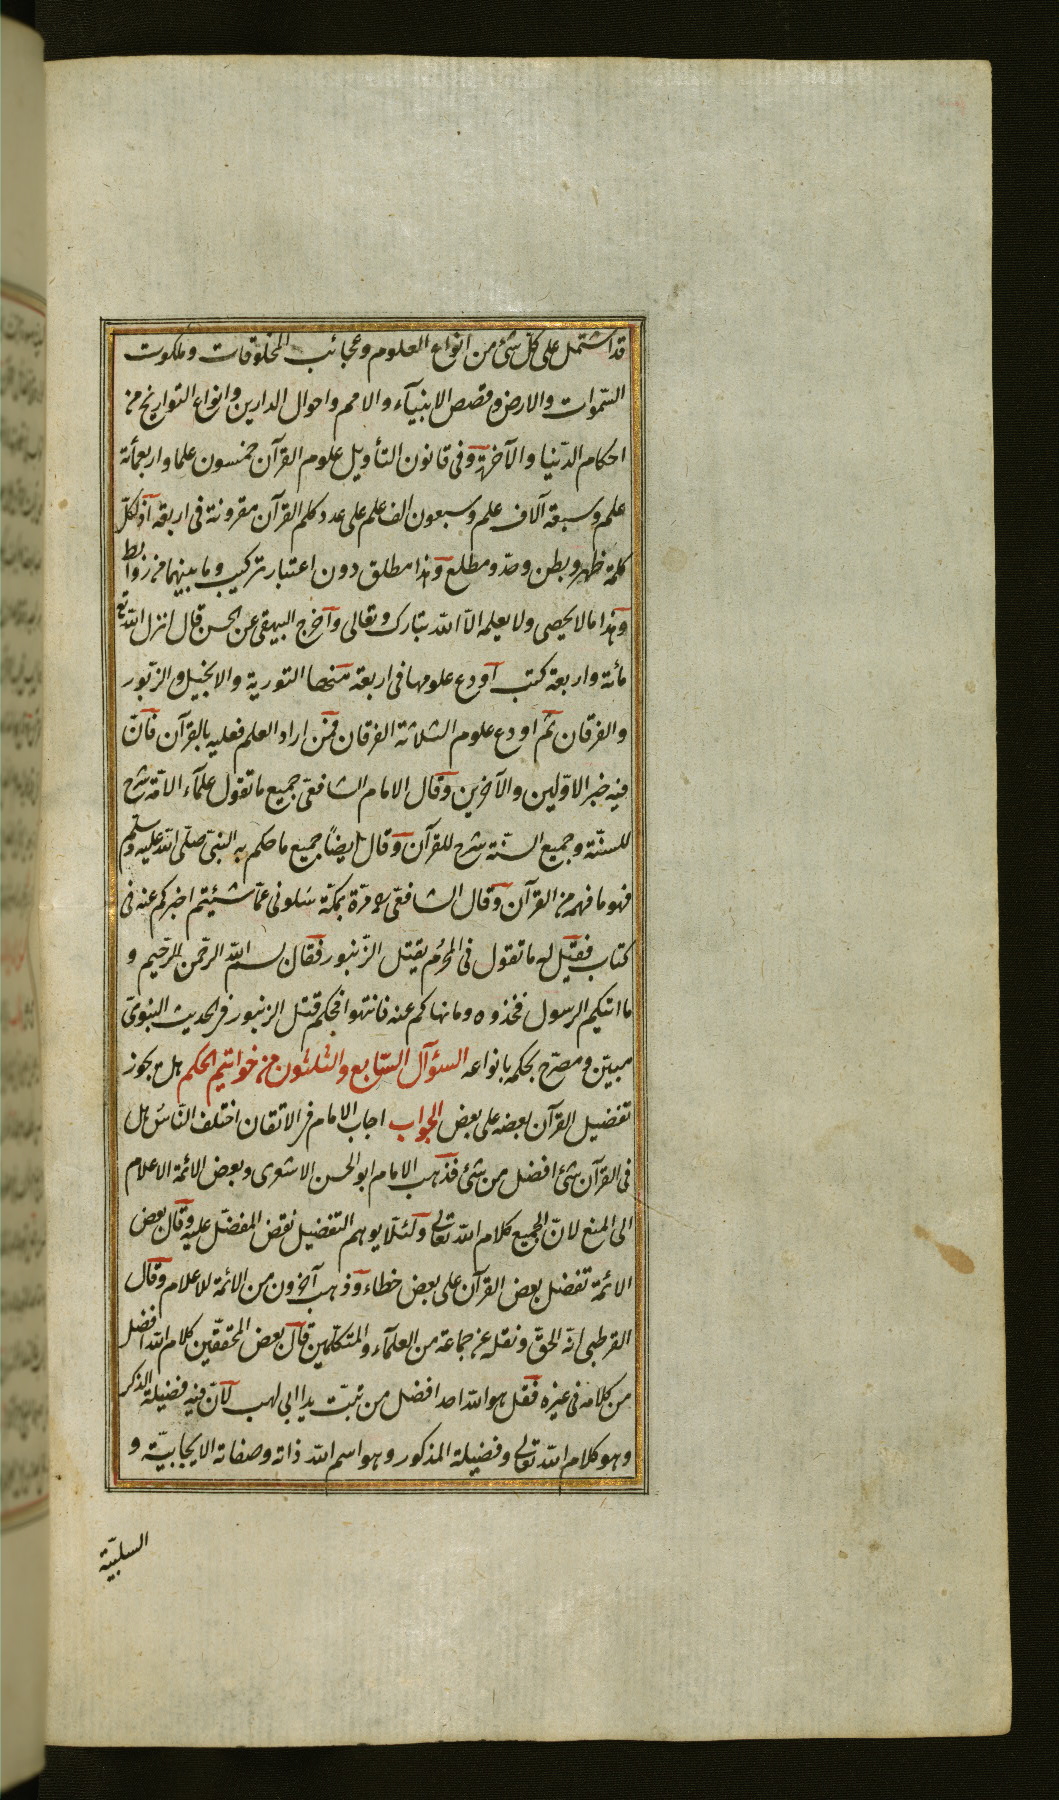 قد اشتمل على كلّ شئ من انواع العلوم وعجائب المخلوقات وملكوت
السّموات والارض وقصص الانبيآء والامم واحوال الدارين وانواع التواريخ من
احكام الدّنيا والآخرة وفى قانون التأويل علوم القرآن خمسون علما واربعمأئة
علم وسبعة آلاف علم وسبعون الف علم على عدد كلم القرآن مقرونة فى اربعة اذ لكلّ
كلمة ظهر وبطن وحدّ ومطلع وهذا مطلق دون اعتبار تركيب وما بينهما من روابط
وهذا مالا يحصى ولا يعلمه الّا اللّه تبارك وتعالى وآخرج البيهقى عن الحسن قال انزل اللّه تع
مائة واربعة كتب اودع علومها فى اربعة منها التورية والانجيل والزّبور
والفرقان ثمّ اودع علوم الثلاثة الفرقان فمن اراد العلم فعليه بالقرآن فانّ
فيه خبر الاوّلين والآخرين وقال الامام الشافعىّ جميع ما تقول علمآء الامّة شرح
للسنّة وجميع السنّة شرح للقرآن وقال ايضًا جميع ما حكم به النبىّ صلّى اللّه عليه وسلّم
فهو ما فهمه من القرآن وقال الشافعىّ مرّة بمكّة سلونى عمّا شئيتم اخبركم عنه فى
كتاب فقيل له ما تقول فى المحرم يقتل الزّنبور فقال بسم اللّه الرّحمن الرّحيم و
ما اتيكم الرسول فخذوه وما نهاكم عنه فانتهوا فحكم قتل الزنبور فى الحديث النبوىّ
مبيّن ومصرّح بحكمه بانواعه السؤآل السّابع والثلثون من خواتيم الحكم هل يجوز
تفضيل القرآن بعضه على بعض الجواب اجاب الامام فى الاتقان اختلف النّاس هل
فى القرآن شئ افضل من شئ فذهب الامام ابو الحسن الاشعرى وبعض الائمّة الاعلام
الى المنع لانّ الجميع كلام اللّه تعالى ولئلّا يوهم التفضيل نقض المفضّل عليه وقال بعض
الائمّة تفضل بعض القرآن على بعض خطاء وذهب آخرون من الائمّة للاعلام وقال
القرطبى انّه الحقّ ونقله عن جماعة من العلمآء والمتكلّمين قال بعض المحقّقين كلام اللّه افضل
من كلامه فى غيره فقل هو اللّه احد افضل من تبّت يدا ابى لهب لانّ فيه فضيلة الذكر
وهو كلام اللّه تعالى وفضيلة المذكور وهو اسم اللّه ذاته وصفاته الايجابيّة و
السلبيّة